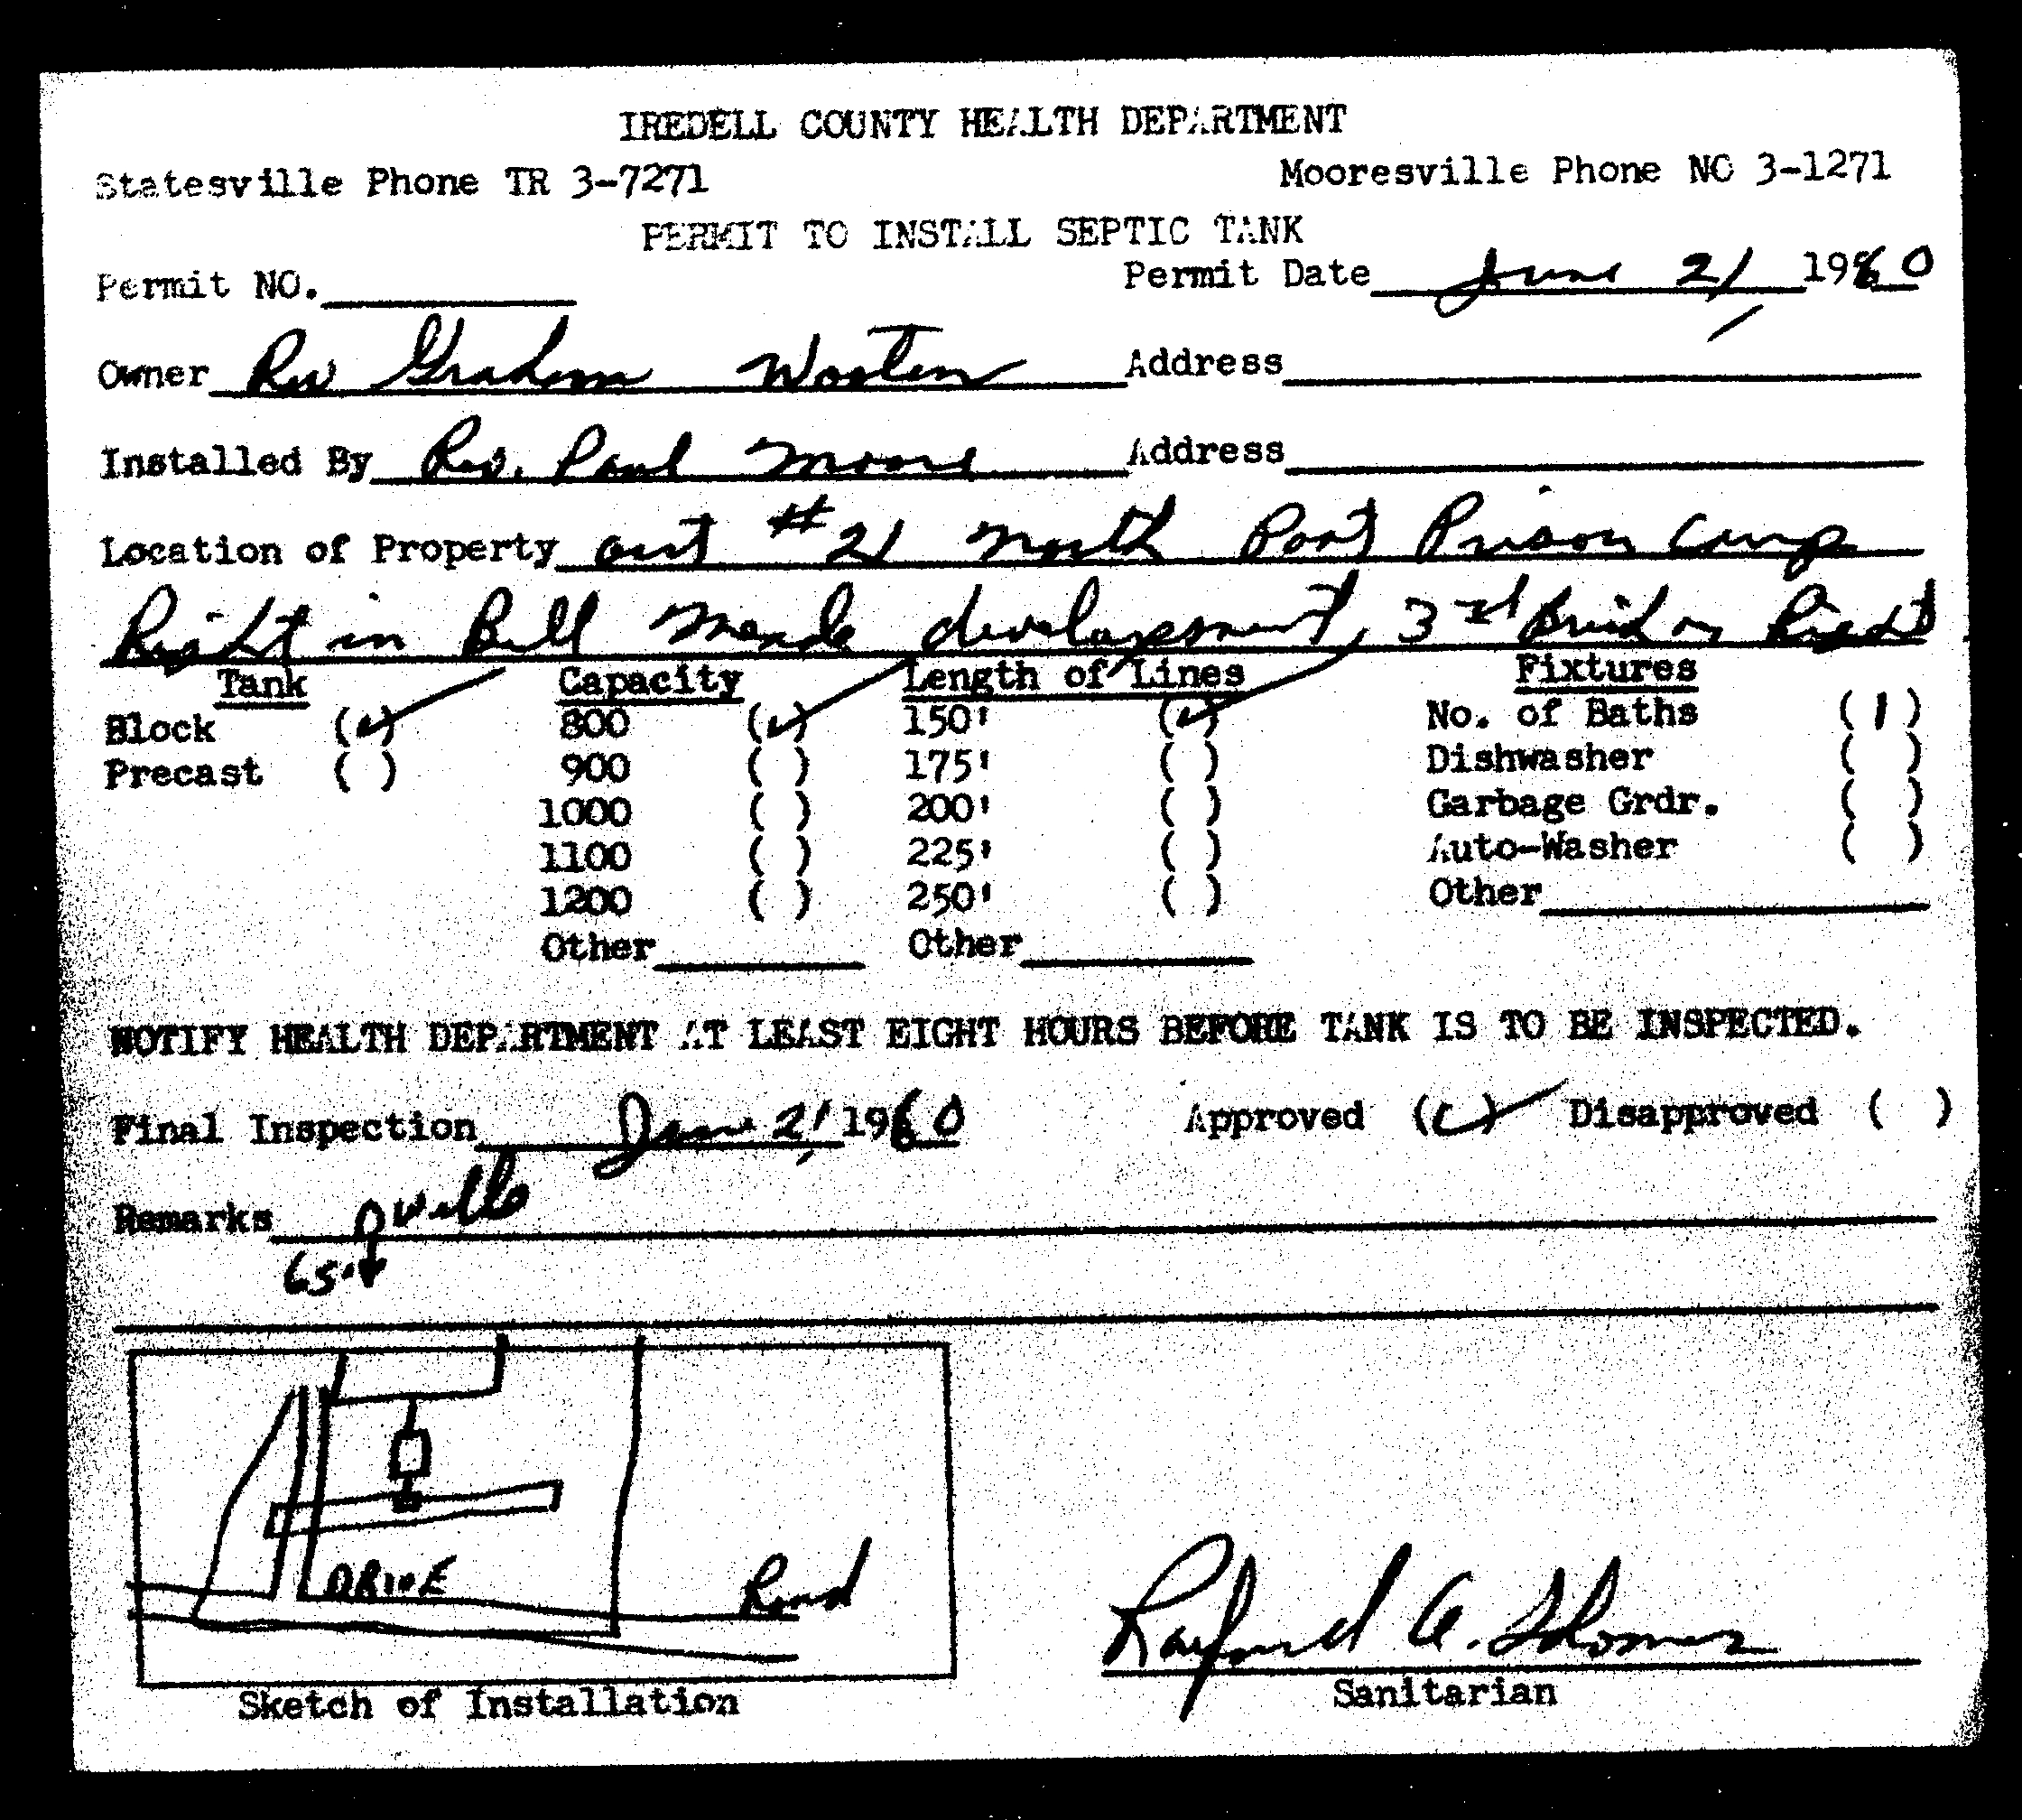 IREDELL COUNTY HEALTH DEPARTMENT
Statesville Phone TR 3-7271 Mooresville Phone NO 3-1271
PERMIT TO INSTALL SEPTIC TANK
Permit NO. Permit Date June 21, 1960
Owner Rev Graham Wooten Address
Installed By Rev. Paul Moore Address
Location of Property out #21 north Past Prison Camp
Right in Bill Meade development, 3rd Brick on Right.
Tank Capacity Length of Lines Fixtures
Block (✓) 800 (✓) 150' (✓) No. of Baths (1)
Precast ( ) 900 ( ) 175' ( ) Dishwasher ( )
1000 ( ) 200' ( ) Garbage Grdr. ( )
1100 ( ) 225' ( ) Auto-Washer ( )
1200 ( ) 250' ( ) Other
Other Other
NOTIFY HEALTH DEPARTMENT AT LEAST EIGHT HOURS BEFORE TANK IS TO BE INSPECTED.
Final Inspection June 21, 1960 Approved (✓) Disapproved ( )
Remarks well
65'
DRIVE Road
Raymond A. Thomas
Sketch of Installation Sanitarian